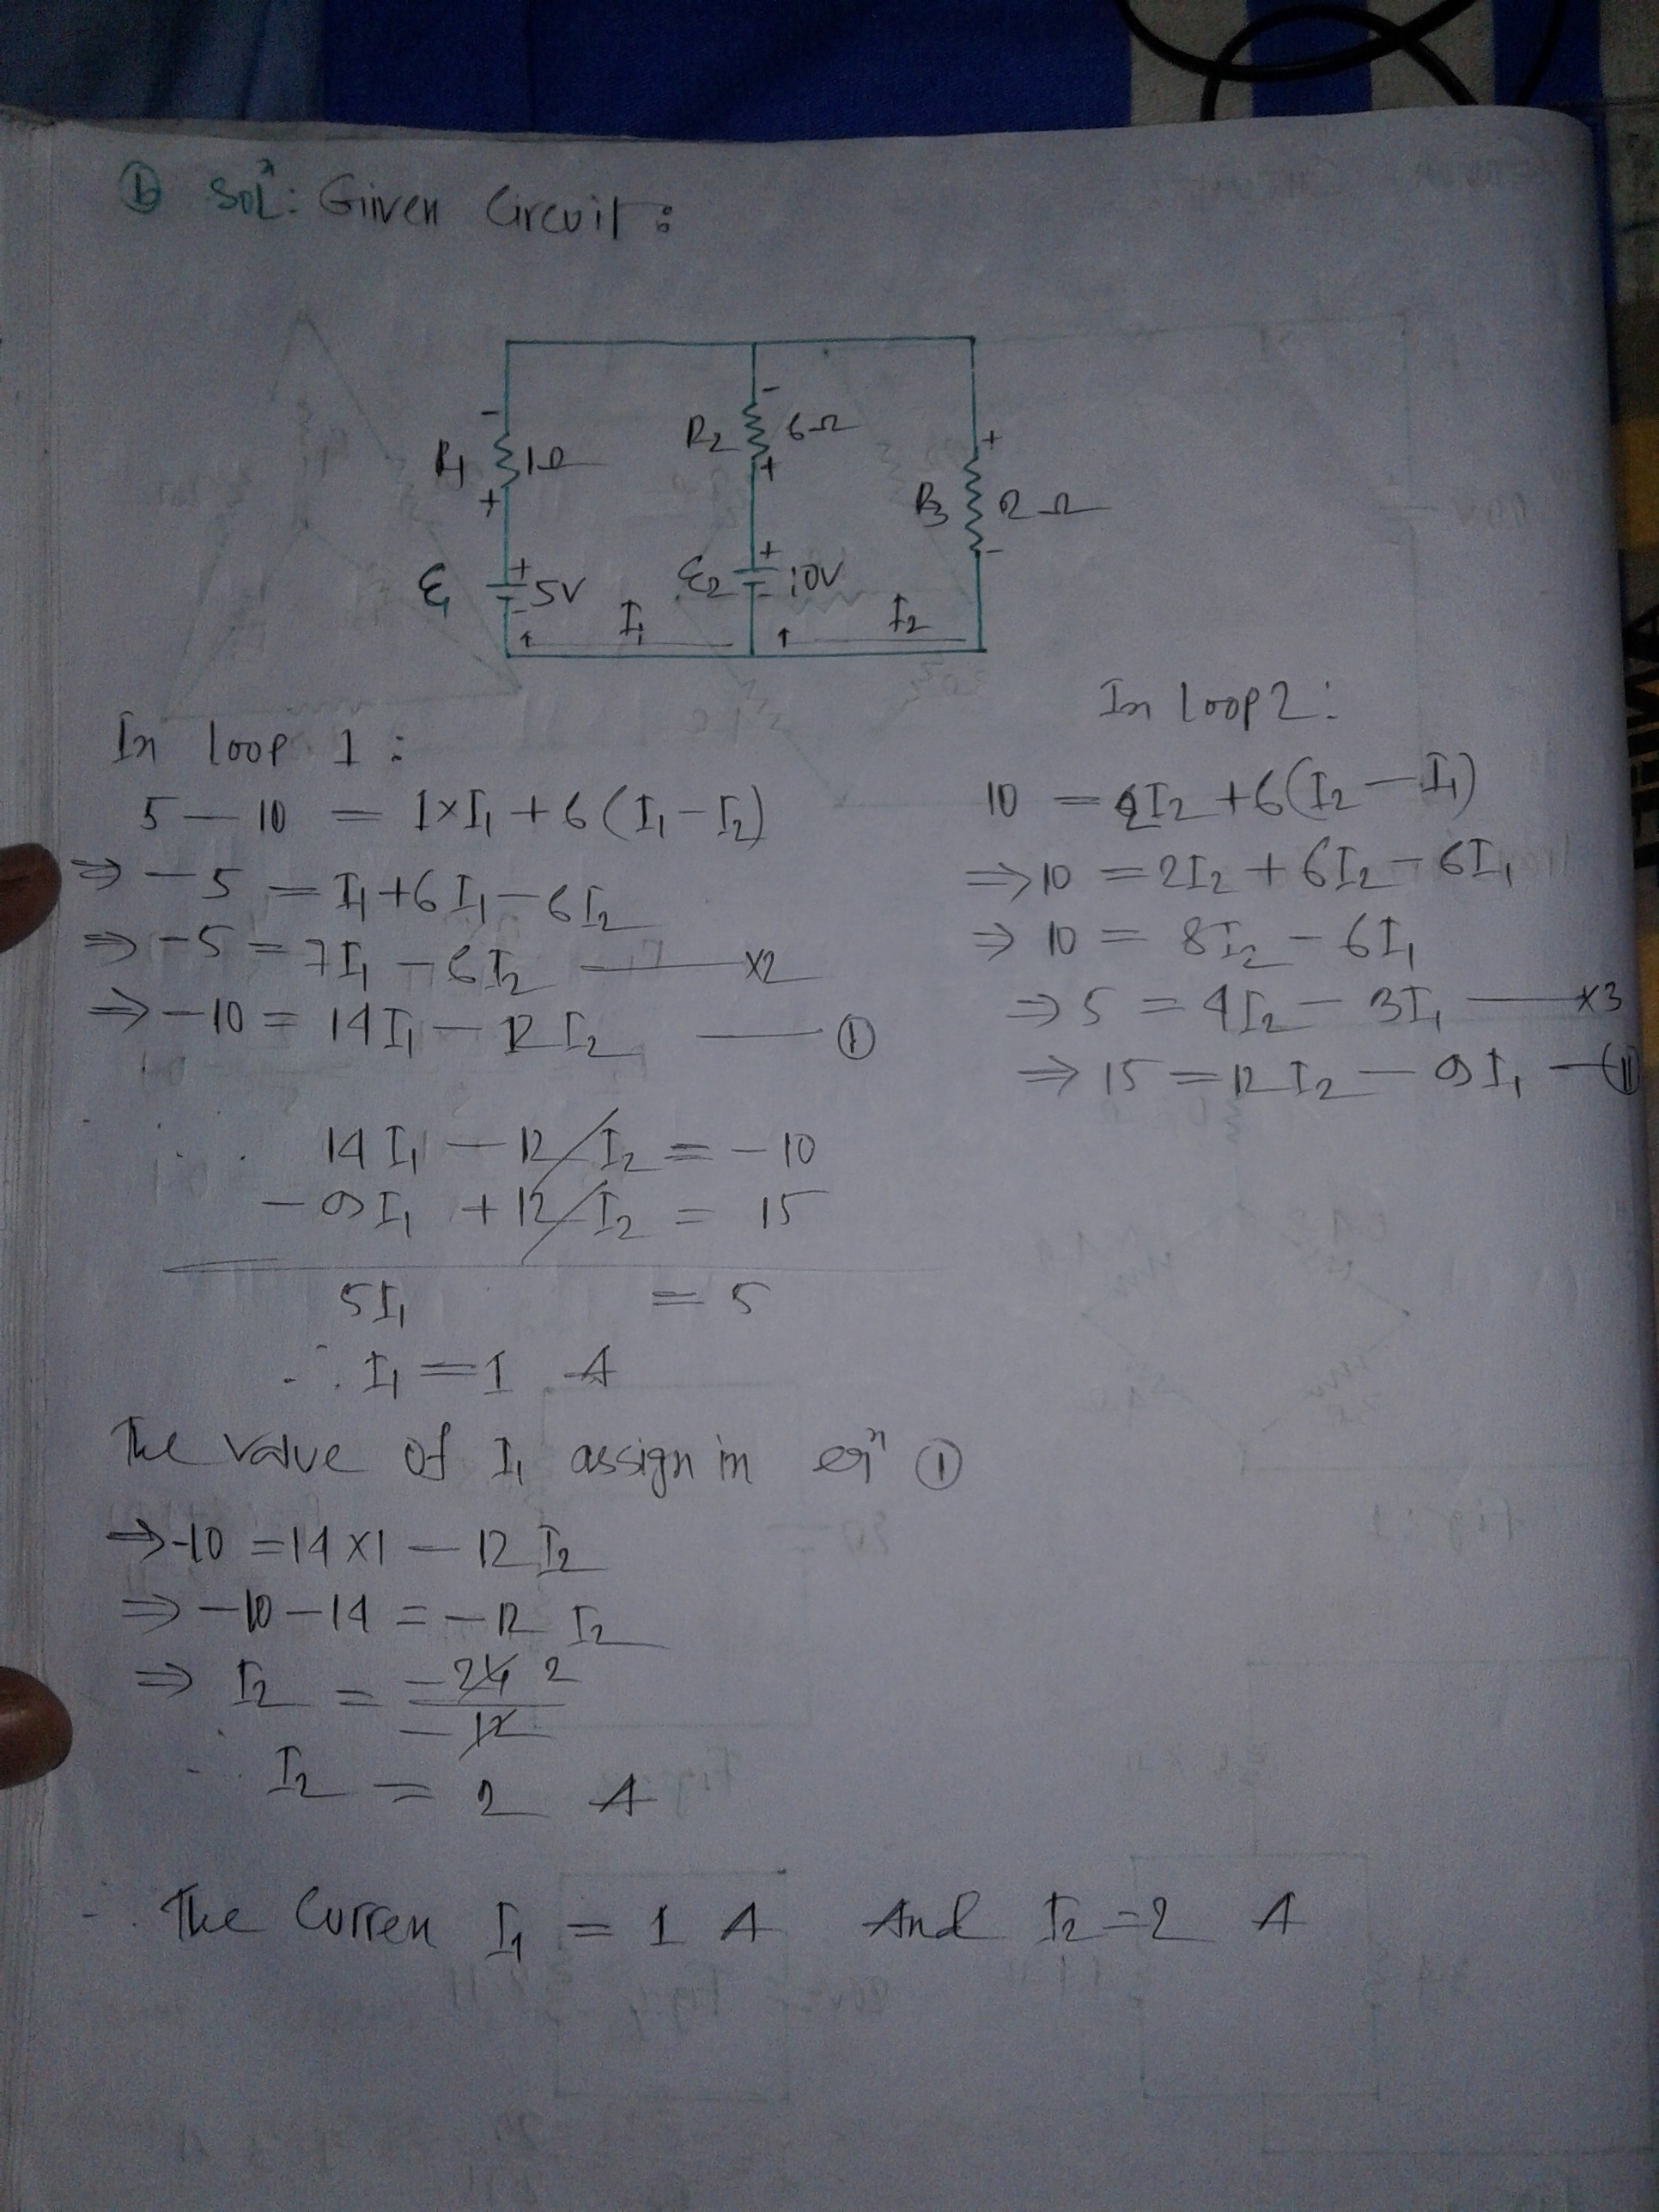 b Solⁿ: Giiven Circuit:
R1 1Ω
R2 6Ω
R3 2Ω
- + - + + -
ε1 + - 5V
ε2 + - 10V
I1
I2
In loop 1:
5 — 10 = 1×I1 + 6(I1 - I2)
⇒ -5 = I1 + 6I1 - 6I2
⇒ -5 = 7I1 - 6I2 —— ×2
⇒ -10 = 14I1 - 12I2 —— ①
In loop 2:
10 = 2I2 + 6(I2 - I1)
⇒ 10 = 2I2 + 6I2 - 6I1
⇒ 10 = 8I2 - 6I1
⇒ 5 = 4I2 - 3I1 —— ×3
⇒ 15 = 12I2 - 9I1 — (II)
14I1 - 12I2 = -10
-9I1 + 12I2 = 15
5I1 = 5
∴ I1 = 1 A
The value of I1 assign in eqⁿ ①
⇒ -10 = 14×1 - 12I2
⇒ -10-14 = -12 I2
⇒ I2 = -24 2 / -12
∴ I2 = 2 A
∴ The Curren I1 = 1 A And I2 = 2 A